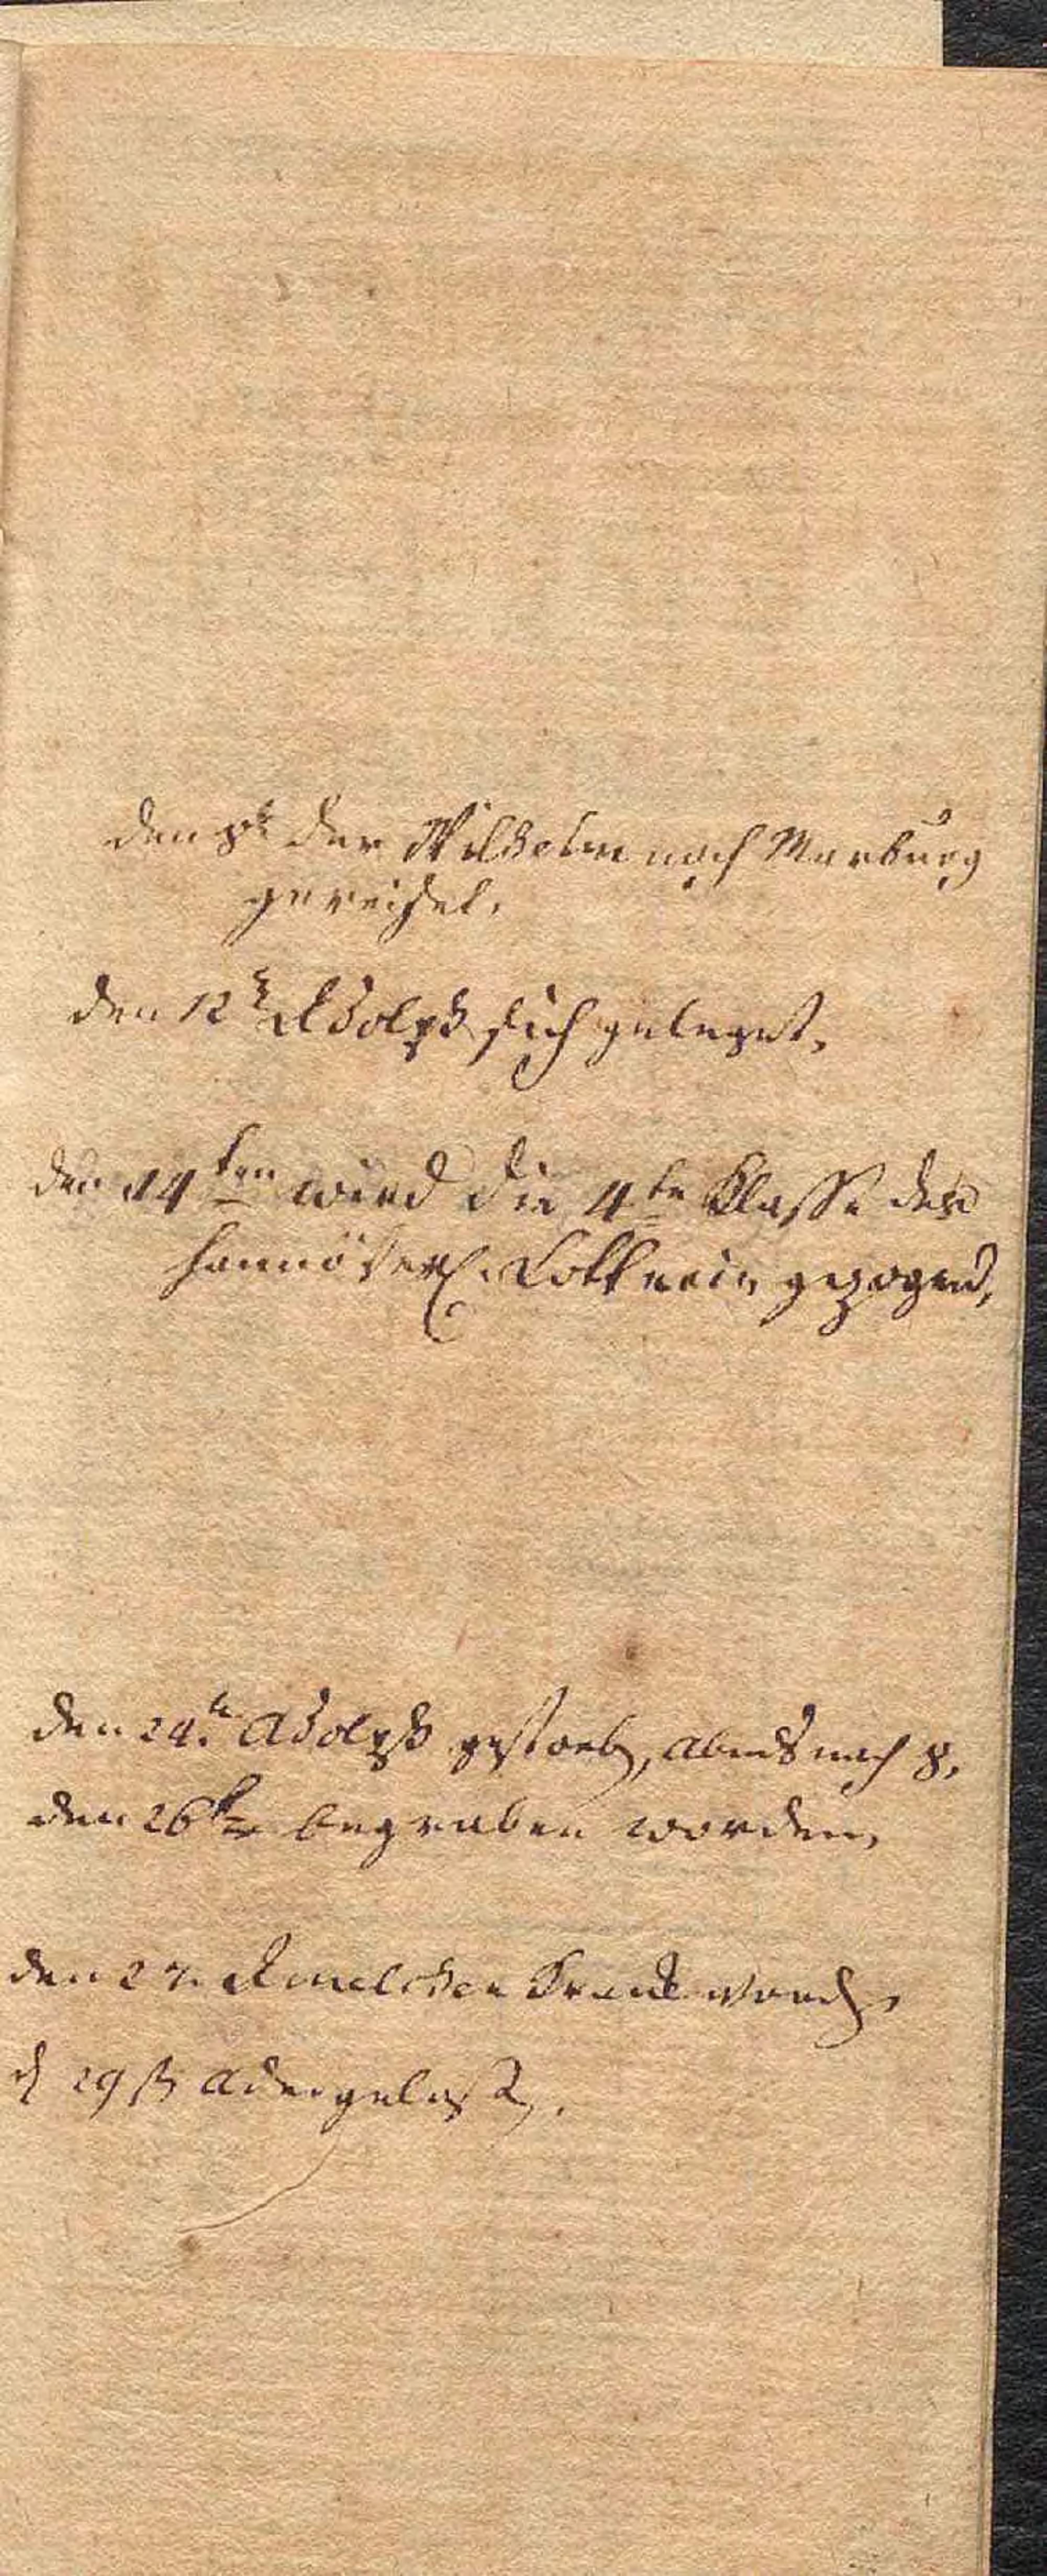 den 8t der Wilhelm nach Marburg
gereiset.
den 12t Adolph sich geleget.
den 14ten wird die 4te Klasse der
hannöverl. Lotterie gezogen,
den 24.te Adolph gestorb, abends nach 8.
den 26te begraben worden,
den 27. Amelchen krank word,
d 29st adergelass.